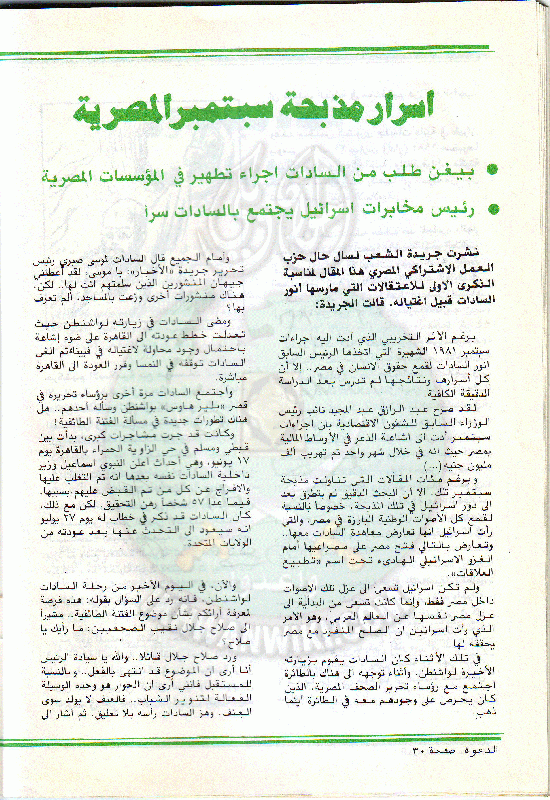 اسرار مذبحة سبتمبر المصرية
● بيغن طلب من السادات اجراء تطهير في المؤسسات المصرية
● رئيس مخابرات اسرائيل يجتمع بالسادات سرا
نشرت جريدة الشعب لسان حال حزب
العمل الاشتراكي المصري هذا المقال لمناسبة
الذكرى الاولى للاعتقالات التي مارسها انور
السادات قبيل اغتياله. قالت الجريدة:
برغم الأثر التخريبي الذي أدت اليه إجراءات
سبتمبر ١٩٨١ الشهيرة التي اتخذها الرئيس السابق
أنور السادات لقمع حقوق الانسان في مصر.. إلا أن
كل أسرارها ونتائجها لم تدرس بعد الدراسة
الدقيقة الكافية
لقد صرح عبد الرازق عبد المجيد نائب رئيس
الوزراء السابق للشئون الاقتصادية بأن اجراءات
سبتمبر أدت الى اشاعة الذعر في الأوساط المالية
بمصر حيث انه في خلال شهر واحد تم تهريب ألف
مليون جنيه (...)
وبرغم مئات المقالات التي تناولت مذبحة
سبتمبر تلك إلا أن البحث الدقيق لم يتطرق بعد
الى دور اسرائيل في تلك المذبحة، خصوصاً بالنسبة
لقمع كل الأصوات الوطنية البارزة في مصر، والتي
رأت اسرائيل انها تعارض معاهدة السادات معها..
وتعارض بالتالي فتح مصر على مصراعيها أمام
الغزو الاسرائيلي الهادىء تحت اسم «تطبيع
العلاقات».
ولم تكن اسرائيل تسعى الى عزل تلك الاصوات
داخل مصر فقط، وإنما كانت تسعى من البداية الى
عزل مصر نفسها عن العالم العربي، وهو الأمر
الذي رأت اسرائيل ان الصلح المنفرد مع مصر
يحققه لها
في تلك الأثناء كان السادات يقوم بزيارته
الأخيرة لواشنطن. وأثناء توجهه الى هناك بالطائرة
اجتمع مع رؤساء تحرير الصحف المصرية، الذين
كان يحرص على وجودهم معه في الطائرة أينما
ذهب
وأمام الجميع قال السادات لموسى صبري رئيس
تحرير جريدة «الأخبار»: يا موسى، لقد أعطتني
جيهان المنشورين الذين سلمتهم أنت لها.. لكن
هناك منشورات أخرى وزعت بالمساجد، ألم تعرف
بها؟
ومضى السادات في زيارته لواشنطن حيث
تعدلت خطط عودته الى القاهرة على ضوء إشاعة
باحتمال وجود محاولة لاغتياله في فيينا، ثم الغى
السادات توقفه في النمسا وقرر العودة الى القاهرة
مباشرة.
واجتمع السادات مرة أخرى برؤساء تحريره في
قصر «بلير هاوس» بواشنطن وسأله أحدهم.. هل
هناك تطورات جديدة في مسألة الفتنة الطائفية!
وكانت قد جرت مشاجرات كبرى، بدأت بين
قبطي ومسلم في حي الزاوية الحمراء بالقاهرة يوم
١٧ يونيو، وهي أحداث أعلن النبوي اسماعيل وزير
داخلية السادات نفسه بعدها انه تم التغلب عليها
والافراج عن كل من تم القبض عليهم بسببها،
فيما عدا ٥٧ شخصاً رهن التحقيق. لكن مع ذلك،
كان السادات قد ذكر في خطاب له يوم ٢٧ يوليو
انه سيعود الى التحدث عنها بعد عودته من
الولايات المتحدة.
والآن، في اليوم الأخير من رحلة السادات
لواشنطن، فانه رد على السؤال بقوله: هذه فرصة
لمعرفة آرائكم بشأن موضوع الفتنة الطائفية.. مشيراً
الى صلاح جلال نقيب الصحفيين: ما رأيك يا
صلاح؟
ورد صلاح جلال قائلا.. والله يا سيادة الرئيس
أنا أرى ان الموضوع قد انتهى بالفعل.. وبالنسبة
للمستقبل فانني أرى ان الحوار هو وحده الوسيلة
الفعالة لتنوير الشباب.. فالعنف لا يولد سوى
العنف. وهز السادات رأسه بلا تعليق. ثم أشار الى
الدعوة. صفحة ٣٠